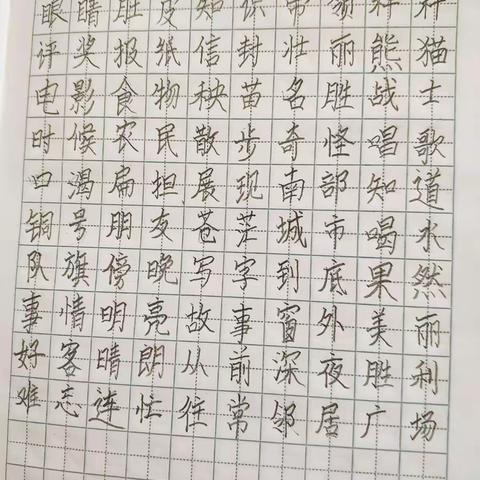 眼睛肚皮知
评奖报纸信封壮丽熊猫
电影食物秧苗名胜战士
时候农民散步奇怪唱歌
口渴扁担展现南部知道
铜号朋友苍茫城市喝水
队旗傍晚写字到底果然
事情明亮故事窗外美丽
好客晴朗从前深夜胜利
难忘连忙往常邻居广场